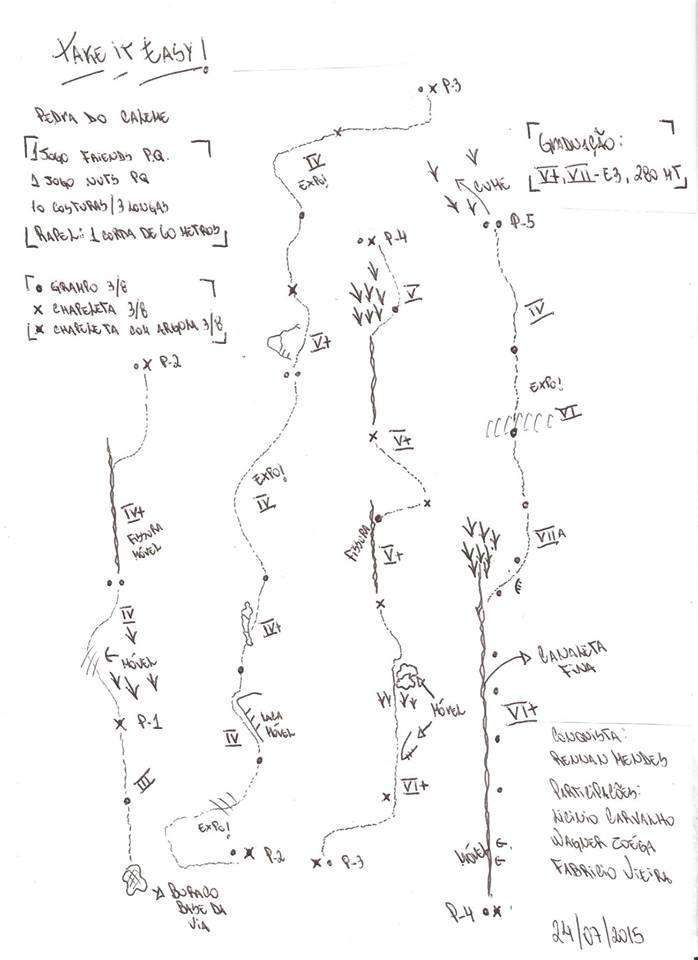 TAKE IT EASY!
PEDRA DO CALEME
1 JOGO FRIENDS PQ.
1 JOGO NUTS PQ
10 COSTURAS/3 LONGAS
RAPEL: 1 CORDA DE 60 METROS
GRAMPO 3/8
x CHAPELETA 3/8
x CHAPELETA COM ARGOLA 3/8
GRADUAÇÃO:
V+, VII- E3, 280 MT
P-2
IV+
FISSURA
MÓVEL
IV
MÓVEL
P-1
III
BURACO
BASE DA
VIA
P-3
IV
EXPO!
V+
EXPO!
IV
IV+
LACA
MÓVEL
IV
EXPO!
P-2
P-4
V
V+
FISSURA
V+
MÓVEL
VI+
P-3
CUME
P-5
IV
EXPO!
VI
VIIA
CANALETA
FINA
VI+
MÓVEL
P-4
CONQUISTA:
RENNAN MENDES
PARTICIPAÇÕES:
LICINIO CARVALHO
WAGNER
FABRICIO VIEIRA
24/07/2015